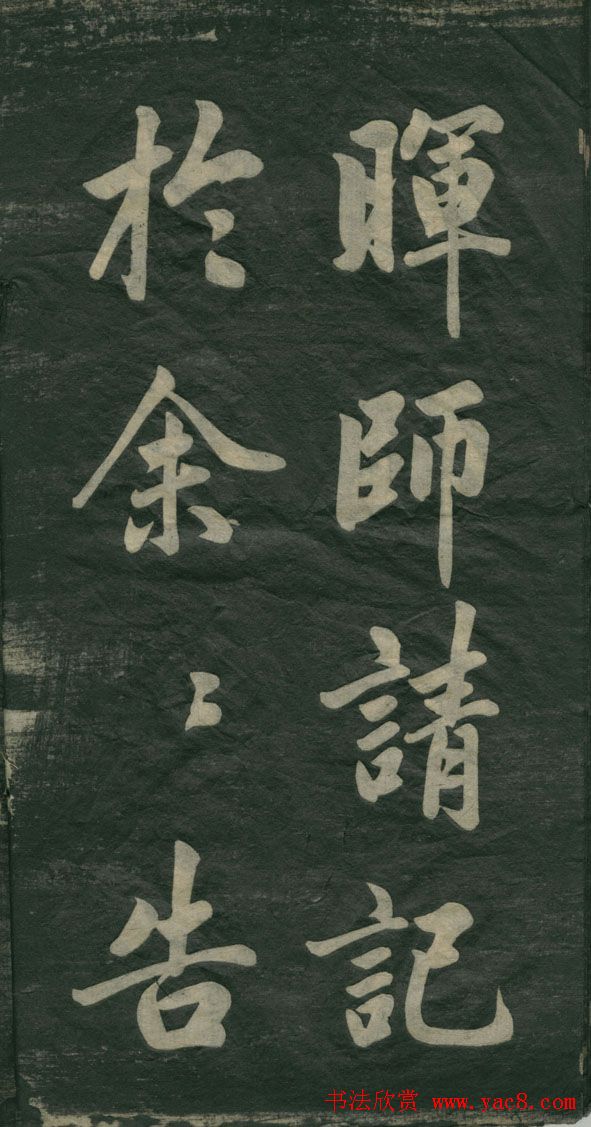 暉師請記
於余〻告
书法欣赏 www.yac8.com